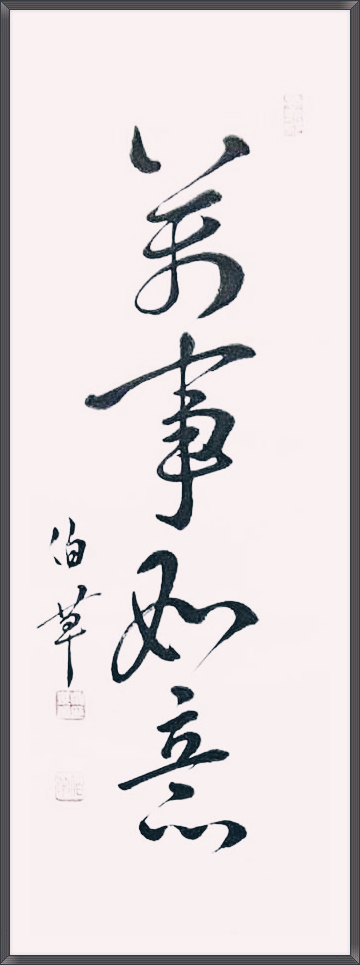 萬事如意
伯草